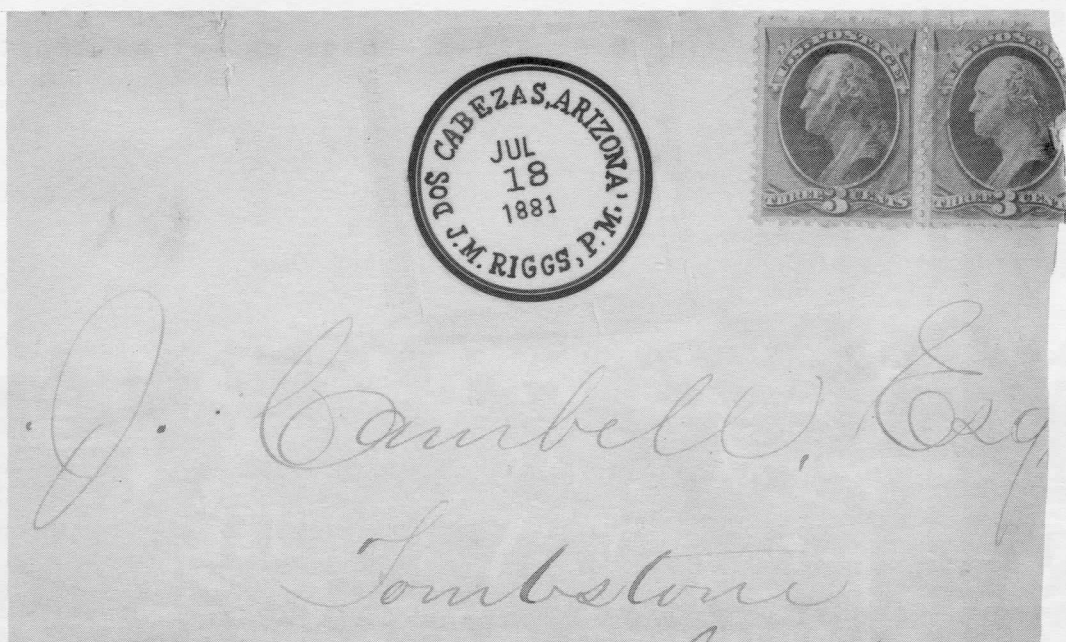 DOS CABEZAS, ARIZONA,
JUL
18
1881
J.M. RIGGS, P.M.,
U.S. POSTAGE
THREE 3 CENTS
U.S. POSTAGE
THREE 3 CENTS
J. Cambell, Esq,
Tombstone